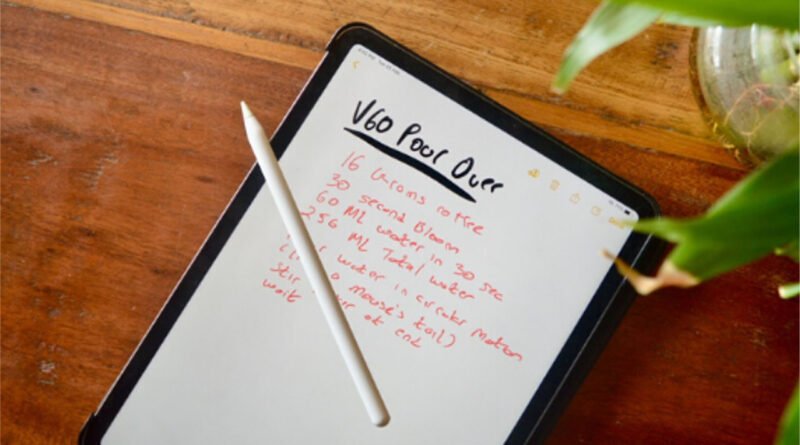 V60 Pour Over
16 Grams
30 second Bloom
60 ML water in 30 sec
256 ML Total water
water in circular Motion
a Mouse's tail)
stir at end
wait